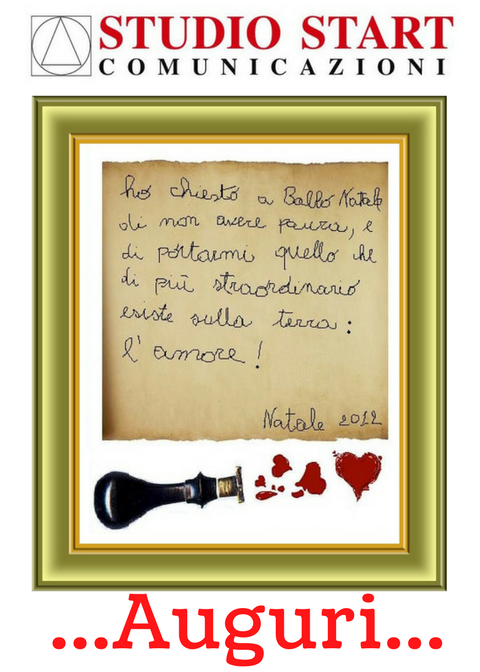 STUDIO START
COMUNICAZIONI
ho chiesto a Babbo Natale
di non avere paura, e
di portarmi quello che
di più straordinario
esiste sulla terra:
l'amore!
Natale 2012
...Auguri...